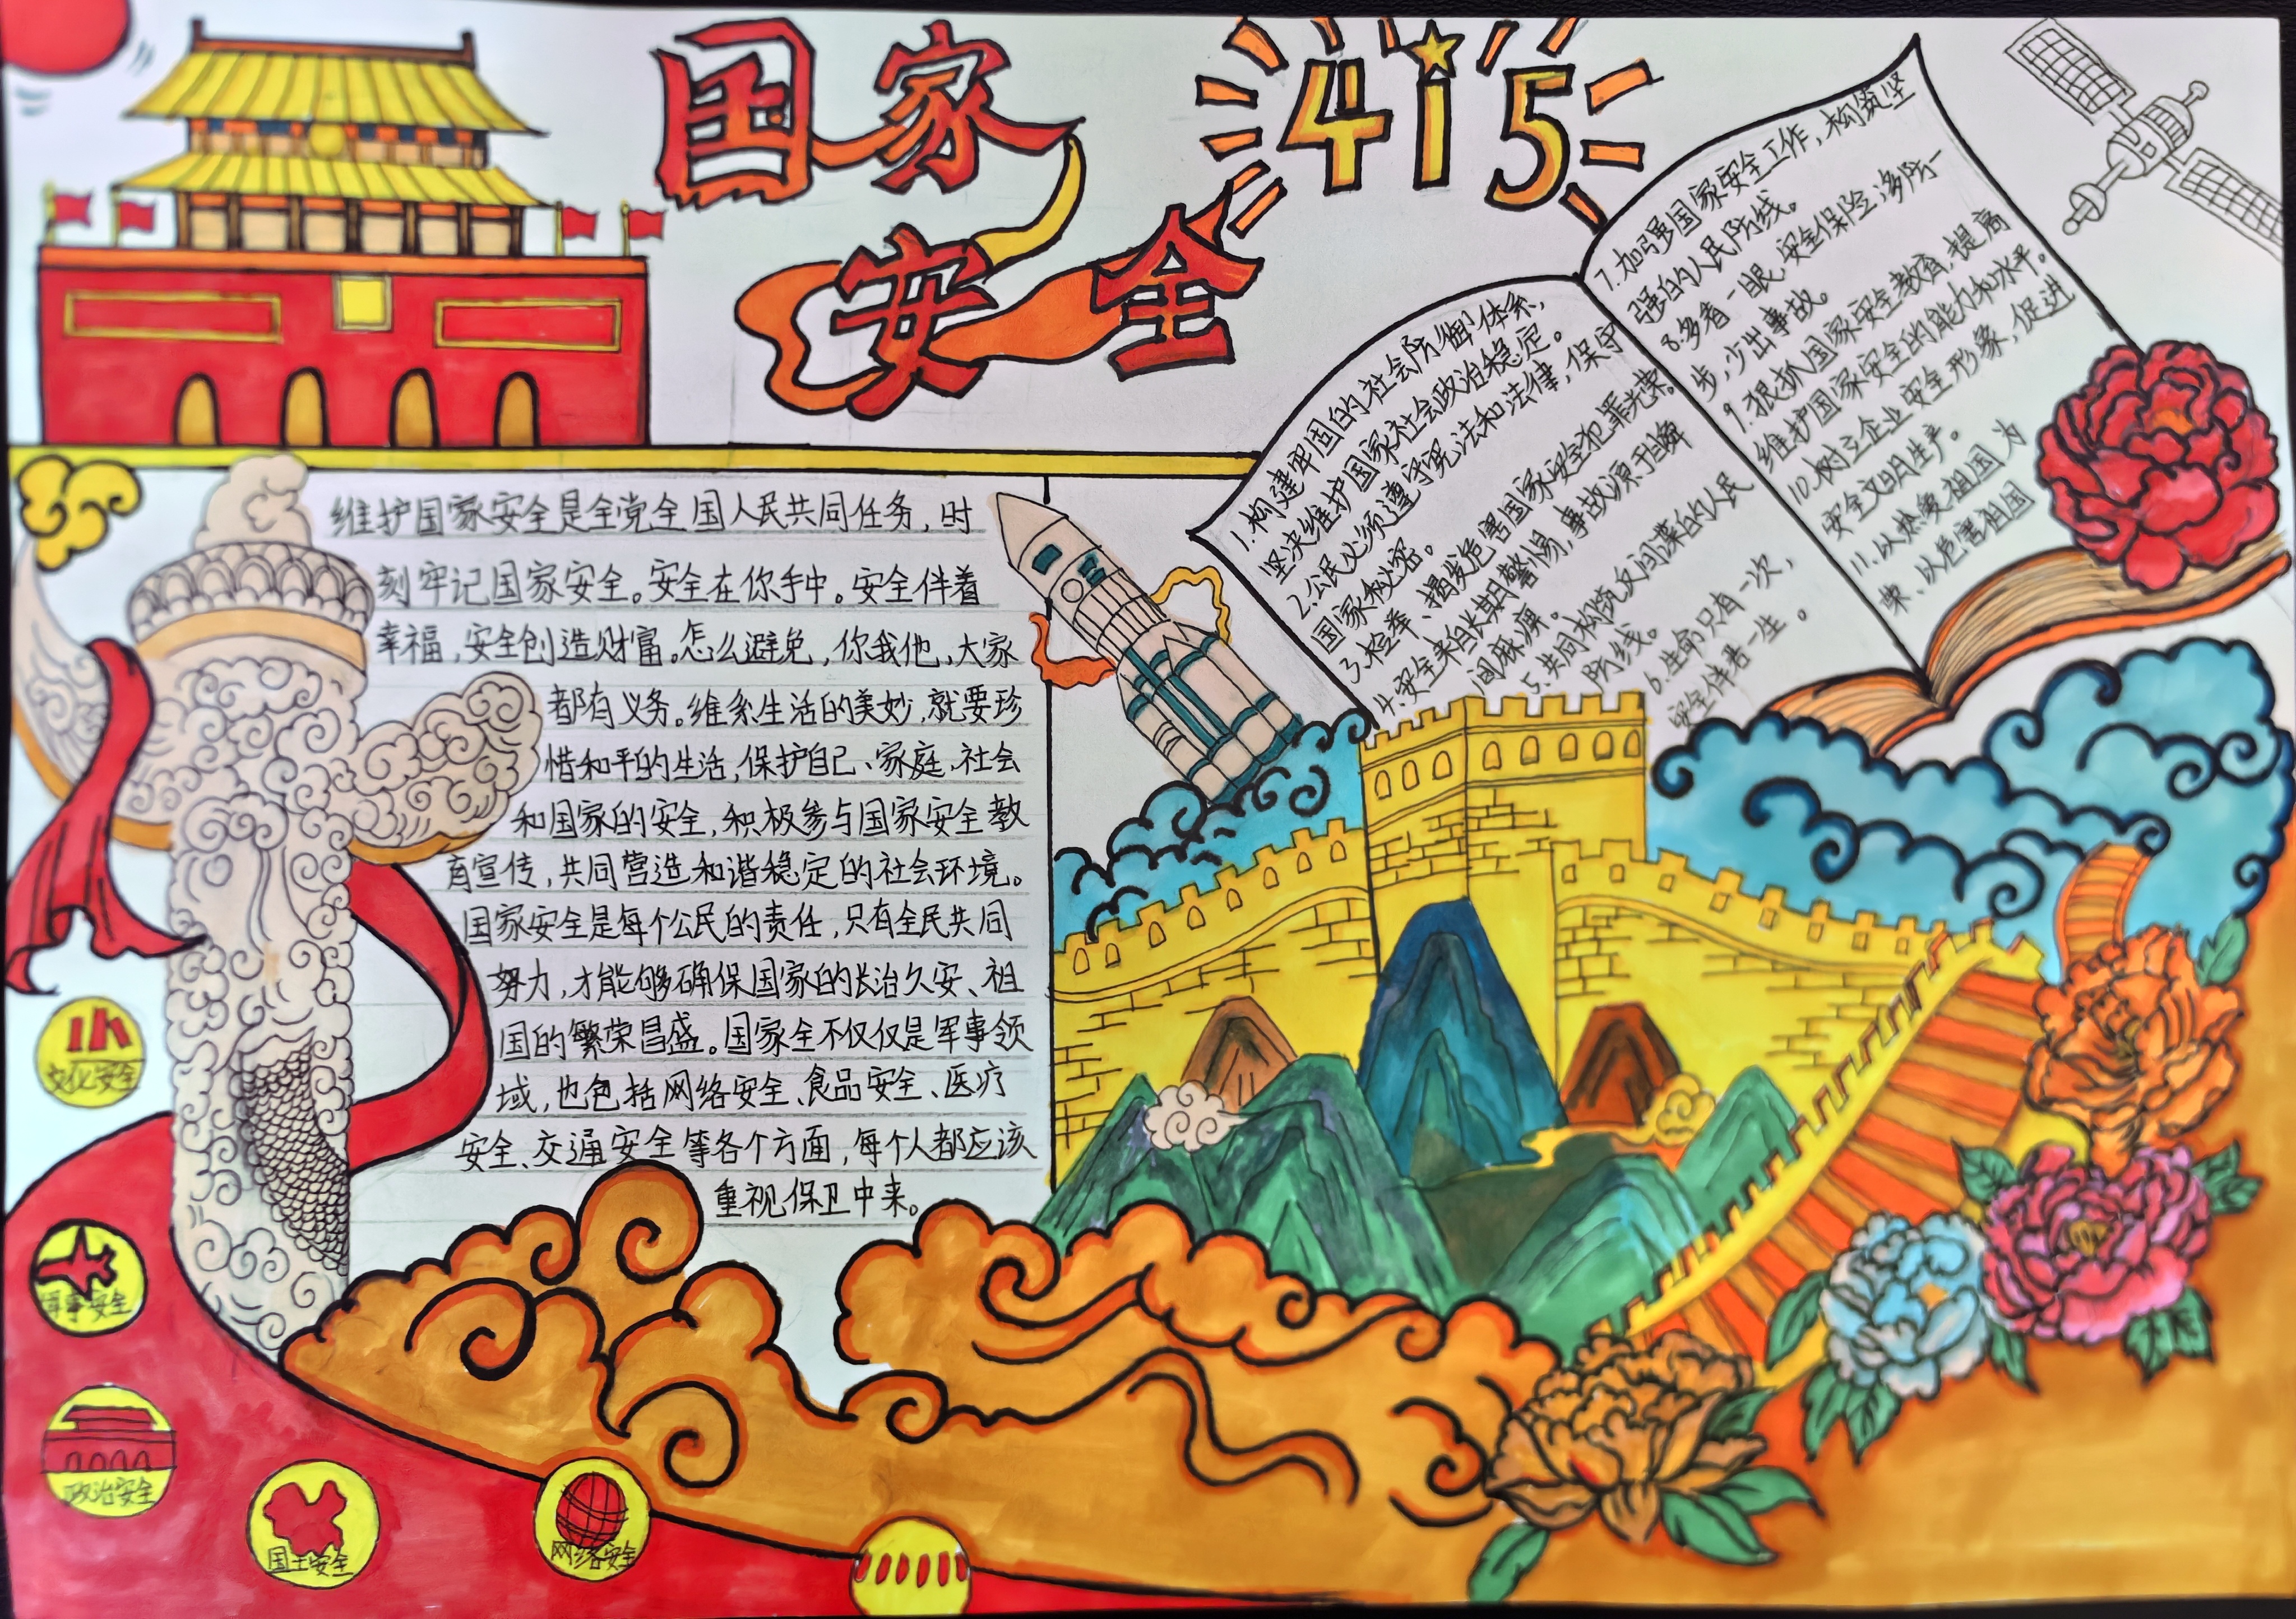 国家
安全
415
维护国家安全是全党全国人民共同任务，时
刻牢记国家安全。安全在你手中。安全伴着
幸福，安全创造财富。怎么避免，你我他，大家
都有义务。维系生活的美妙，就要珍
惜和平的生活，保护自己、家庭、社会
和国家的安全，积极参与国家安全教
育宣传，共同营造和谐稳定的社会环境。
国家安全是每个公民的责任，只有全民共同
努力，才能够确保国家的长治久安、祖
国的繁荣昌盛。国家全不仅仅是军事领
域，也包括网络安全、食品安全、医疗
安全、交通安全等各个方面，每个人都应该
重视保卫中来。
1.构建牢固的社会防御体系，
坚决维护国家社会政治稳定。
2.公民必须遵守宪法和法律，保守
国家秘密。
3.检举、揭发危害国家安全犯罪光荣。
4.安全来自长期警惕，事故源于瞬
间麻痹。
5.共同构筑反间谍的人民
防线。
6.生命只有一次，
安全伴君一生。
7.加强国家安全工作，构筑坚
强的人民防线。
8.多看一眼，安全保险；多防一
步，少出事故。
9.狠抓国家安全教育，提高
维护国家安全的能力和水平。
10.树立企业安全形象，促进
安全文明生产。
11.以热爱祖国为
荣、以危害祖国
文化安全
军事安全
政治安全
国土安全
网络安全